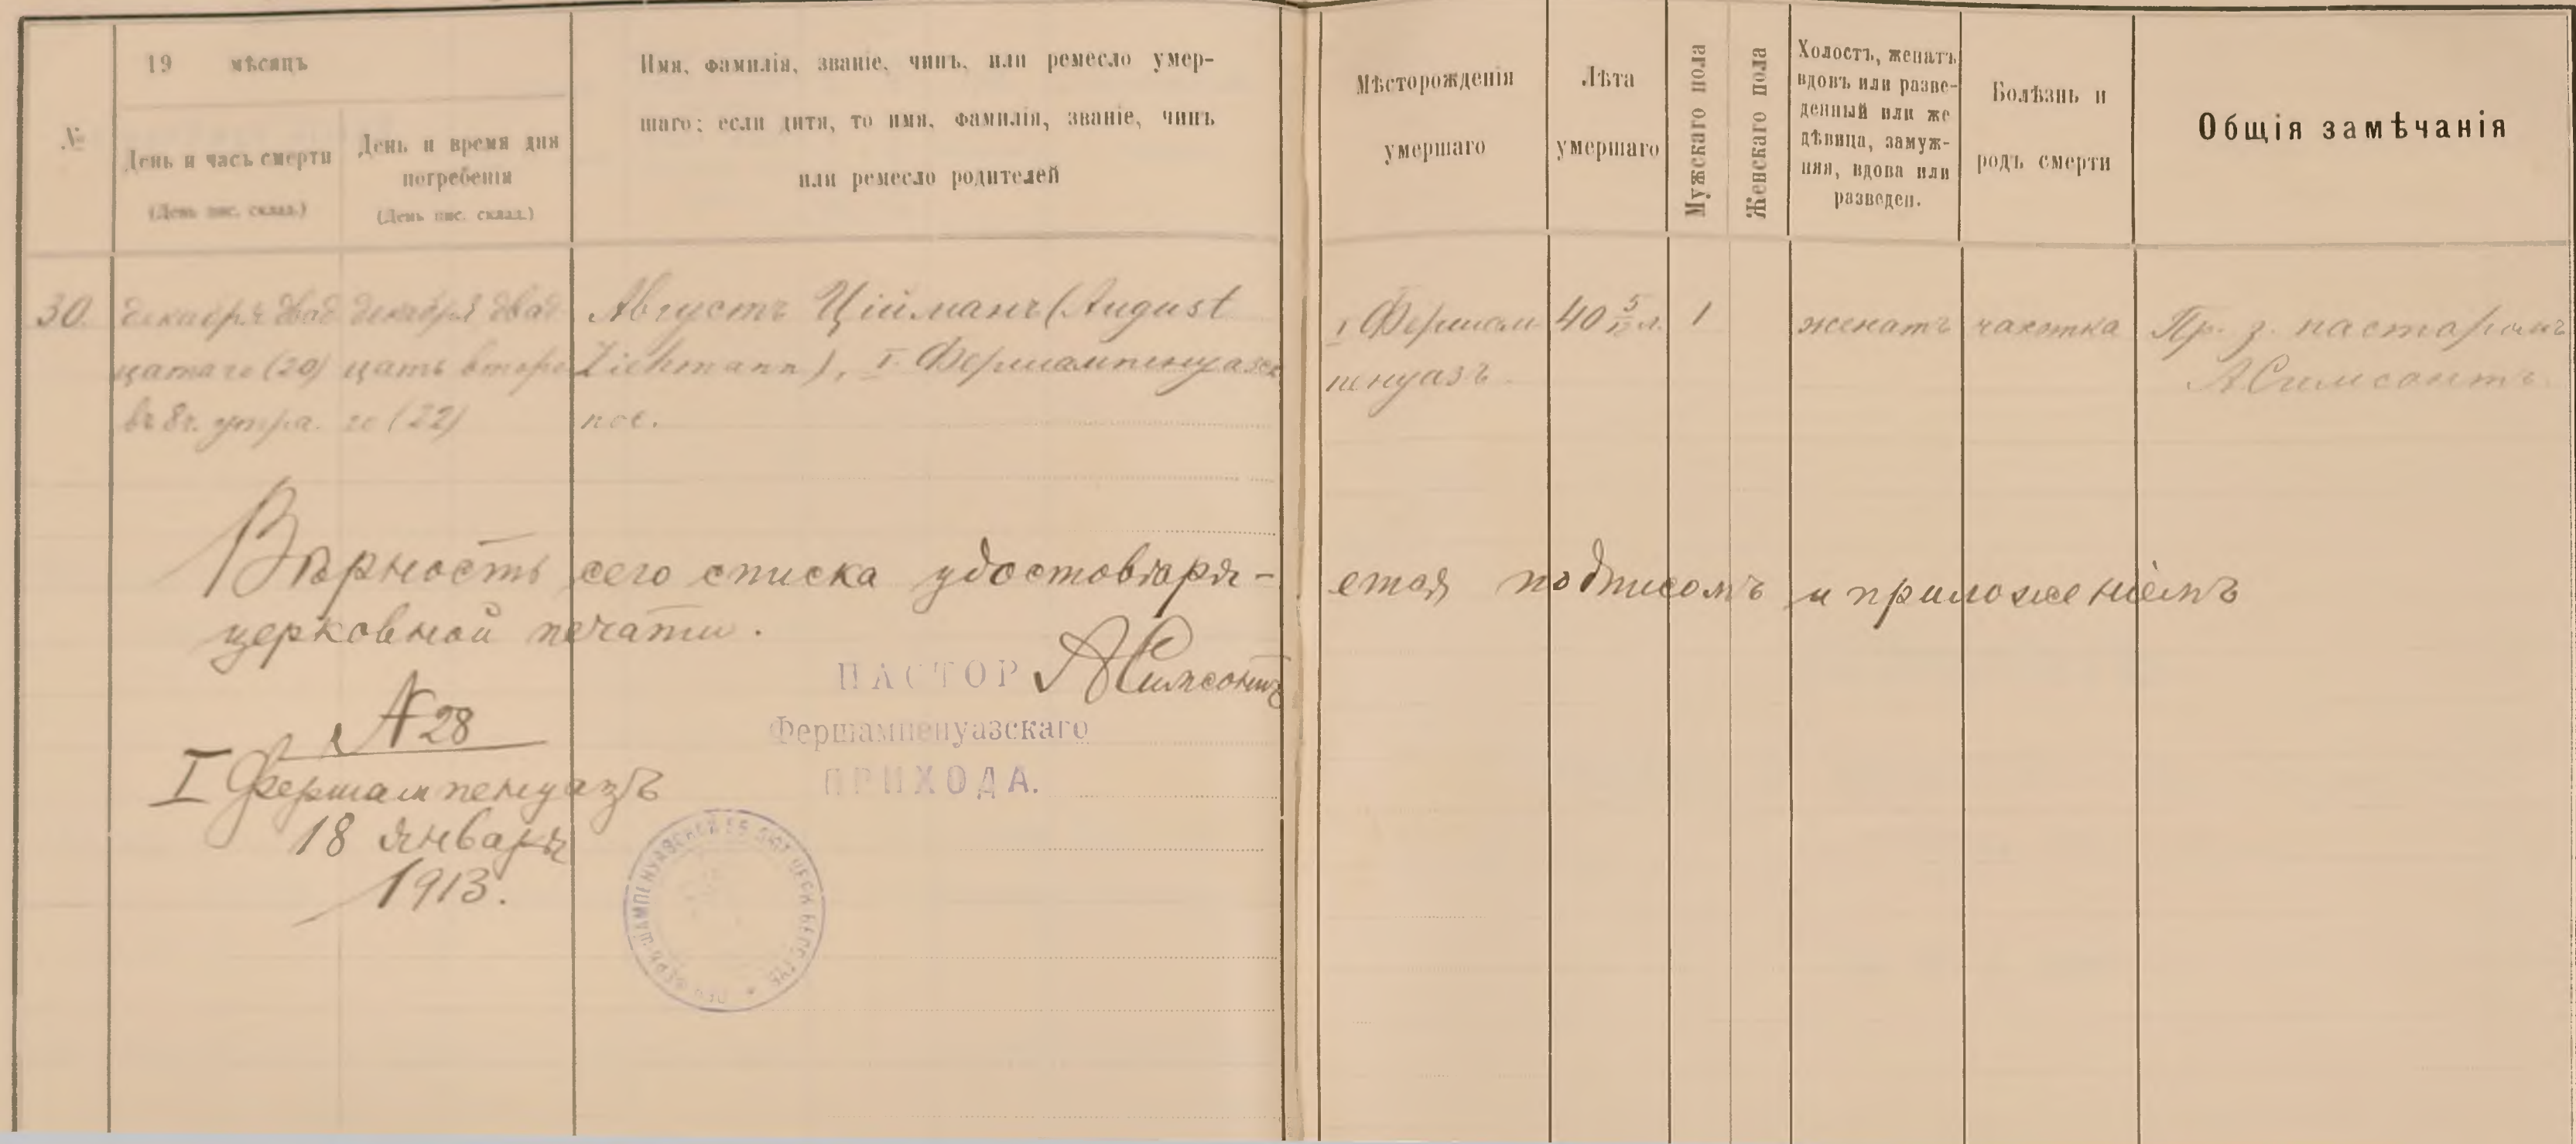 №
19 мѣсяцъ
День и часъ смерти
(День пис. склад.)
День и время дня
погребенія
(День пис. склад.)
Имя, фамилія, званіе, чинъ, или ремесло умер-
шаго; если дитя, то имя, фамилія, званіе, чинъ
или ремесло родителей
Мѣсторожденія
умершаго
Лѣта
умершаго
Мужскаго пола
Женскаго пола
Холостъ, женатъ
вдовъ или разве-
денный или же
дѣвица, замуж-
няя, вдова или
разведен.
Болѣзнь и
родъ смерти
Общія замѣчанія
30.
декабря двад
цатаго (20)
въ 8 ч. утра.
декабря двад
цать второ
го (22)
Августъ Ційманъ (August
Ziehmann), I. Фершампенуазск
пос.
I Фершам
пенуазъ
40 5/12 л.
1
женатъ
чахотка
Пр. з. пасторомъ
АСимсонъ
Вѣрность сего списка удостовѣря-
ется подписомъ и приложеніемъ
церковной печати.
ПАСТОР АСимсонъ
Фершампенуазскаго
ПРИХОДА.
№ 28
I Фершампенуазъ
18 января
1913.
ФЕРЪ-ШАМПЕНУАЗСКОЙ ЕВ. ЛЮТ. ЦЕРК. БЕСС. ГУБ.